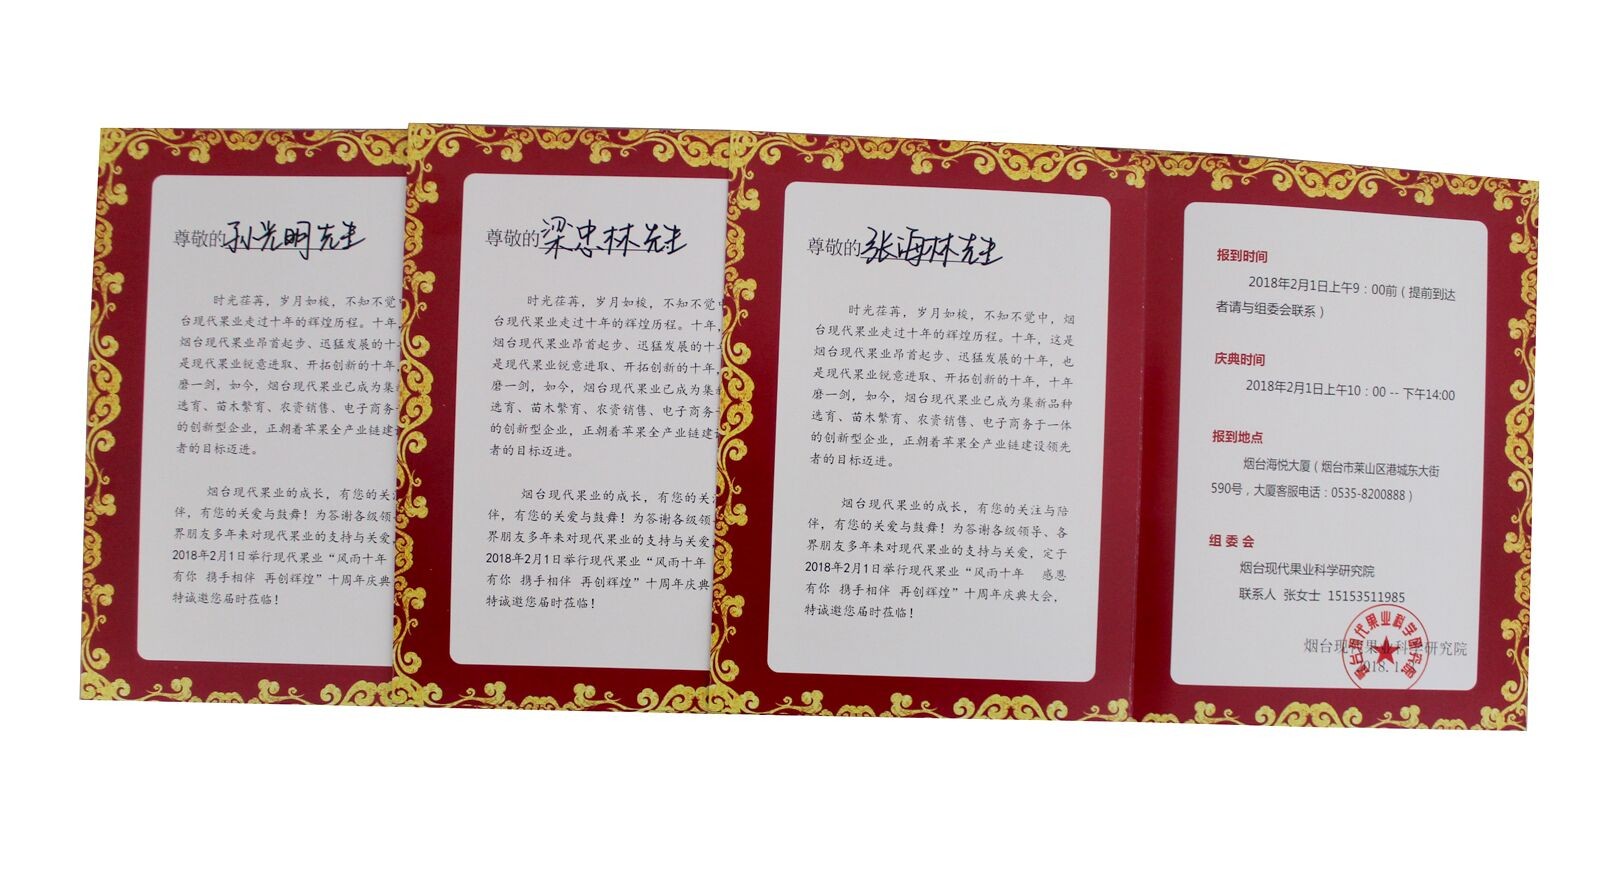 尊敬的孙光明先生
时光荏苒，岁月如梭，不知不觉中
台现代果业走过十年的辉煌历程。十年，
烟台现代果业昂首起步、迅猛发展的十
是现代果业锐意进取、开拓创新的十年，
磨一剑，如今，烟台现代果业已成为集
选育、苗木繁育、农资销售、电子商务
的创新型企业，正朝着苹果全产业链建
者的目标迈进。
烟台现代果业的成长，有您的关
伴，有您的关爱与鼓舞！为答谢各级领
界朋友多年来对现代果业的支持与关爱
2018年2月1日举行现代果业“风雨十年
有你 携手相伴 再创辉煌”十周年庆典
特诚邀您届时莅临！
尊敬的梁忠林先生
时光荏苒，岁月如梭，不知不觉中
台现代果业走过十年的辉煌历程。十年，
烟台现代果业昂首起步、迅猛发展的十
是现代果业锐意进取、开拓创新的十年，
磨一剑，如今，烟台现代果业已成为集
选育、苗木繁育、农资销售、电子商务
的创新型企业，正朝着苹果全产业链建
者的目标迈进。
烟台现代果业的成长，有您的关
伴，有您的关爱与鼓舞！为答谢各级领
界朋友多年来对现代果业的支持与关爱
2018年2月1日举行现代果业“风雨十年
有你 携手相伴 再创辉煌”十周年庆典
特诚邀您届时莅临！
尊敬的张海林先生
时光荏苒，岁月如梭，不知不觉中，烟
台现代果业走过十年的辉煌历程。十年，这是
烟台现代果业昂首起步、迅猛发展的十年，也
是现代果业锐意进取、开拓创新的十年，十年
磨一剑，如今，烟台现代果业已成为集新品种
选育、苗木繁育、农资销售、电子商务于一体
的创新型企业，正朝着苹果全产业链建设领先
者的目标迈进。
烟台现代果业的成长，有您的关注与陪
伴，有您的关爱与鼓舞！为答谢各级领导、各
界朋友多年来对现代果业的支持与关爱，定于
2018年2月1日举行现代果业“风雨十年 感恩
有你 携手相伴 再创辉煌”十周年庆典大会，
特诚邀您届时莅临！
报到时间
2018年2月1日上午9：00前（提前到达
者请与组委会联系）
庆典时间
2018年2月1日上午10：00 -- 下午14:00
报到地点
烟台海悦大厦（烟台市莱山区港城东大街
590号，大厦客服电话：0535-8200888）
组 委 会
烟台现代果业科学研究院
联系人 张女士 15153511985
烟台现代果业科学研究院
2018.1.
烟台现代果业科学研究院